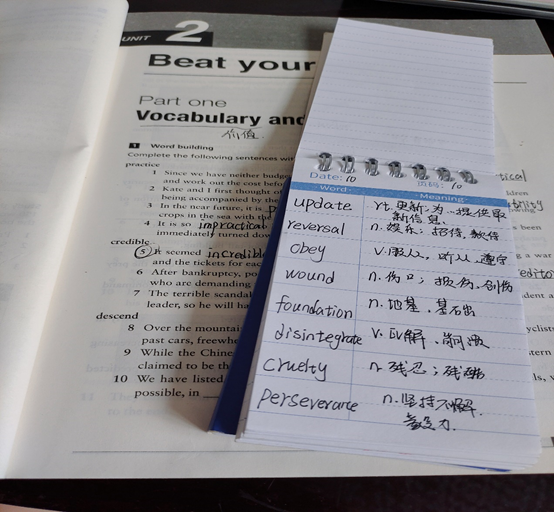 UNIT 2
Beat your
Part one
Vocabulary and
价值
1 Word building
Complete the following sentences with
practice
1 Since we have neither budge
and work out the cost befor
2 Kate and I first thought of
being accompanied by the
3 In the near future, it is p
crops in the sea with the
4 It is so impractical
immediately turned dow
credible
5 It seemed incredible
and the tickets for eac
6 After bankruptcy, po
who are demanding
7 The terrible scandal
leader, so he will ha
descend
8 Over the mountai
past cars, freewhe
9 While the Chine
claimed to be th
10 We have listed
possible, in
Date: 10 页码: 10
Word Meaning
update vt. 更新; 为…提供最
新信息
reversal n. 娱乐; 招待, 款待
obey v. 服从, 听从, 遵守
wound n. 伤口; 损伤, 创伤
foundation n. 地基, 基石出
disintegrate v. 瓦解、崩溃
cruelty n. 残忍; 残酷
perseverance n. 坚持不懈
毅力